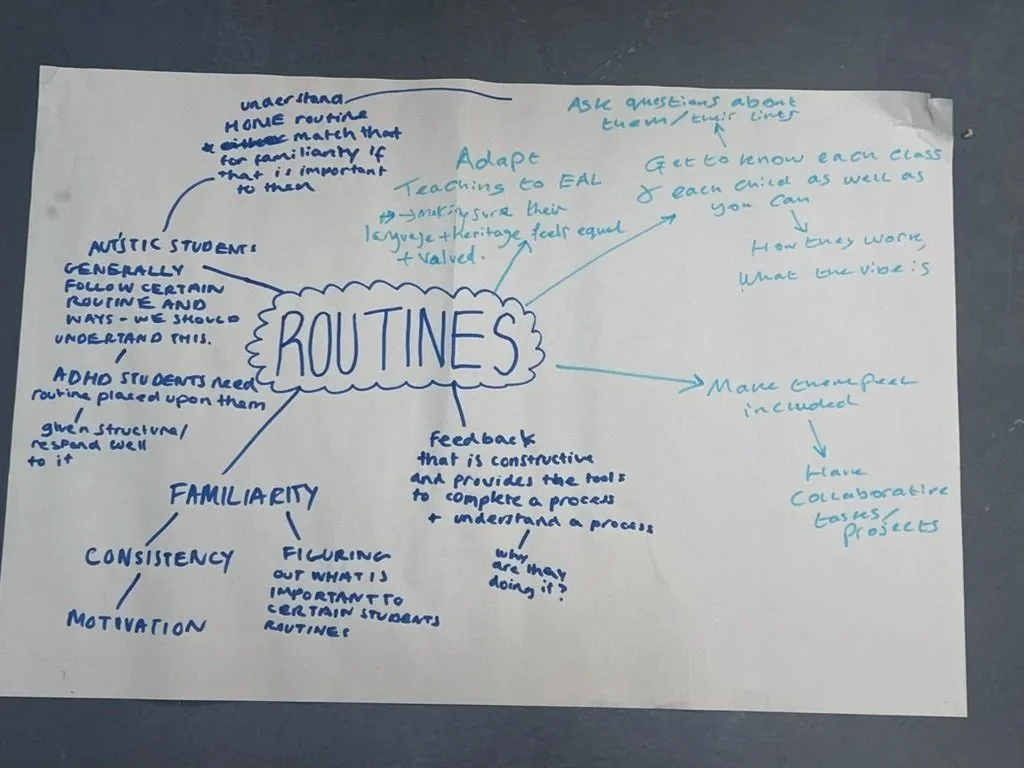 understand
HOME routine
* either match that
for familiarity if
that is important
to them
AUTISTIC STUDENTS:
GENERALLY
FOLLOW CERTAIN
ROUTINE AND
WAYS - WE SHOULD
UNDERTAND THIS.
ADHD STUDENTS need
routine placed upon them
given structure/
respond well
to it
Adapt
Teaching to EAL
→ making sure their
language + heritage feels equal
+ valued.
Ask questions about
them/their lives
Get to know each class
& each child as well as
you can
How they work,
What the vibe is
ROUTINES
Make them feel
included
Have
Collaborative
tasks/
projects
Feedback
that is constructive
and provides the tools
to complete a process
+ understand a process
why
are they
doing it?
FAMILIARITY
CONSISTENCY
MOTIVATION
FIGURING
OUT WHAT IS
IMPORTANT TO
CERTAIN STUDENTS
ROUTINES